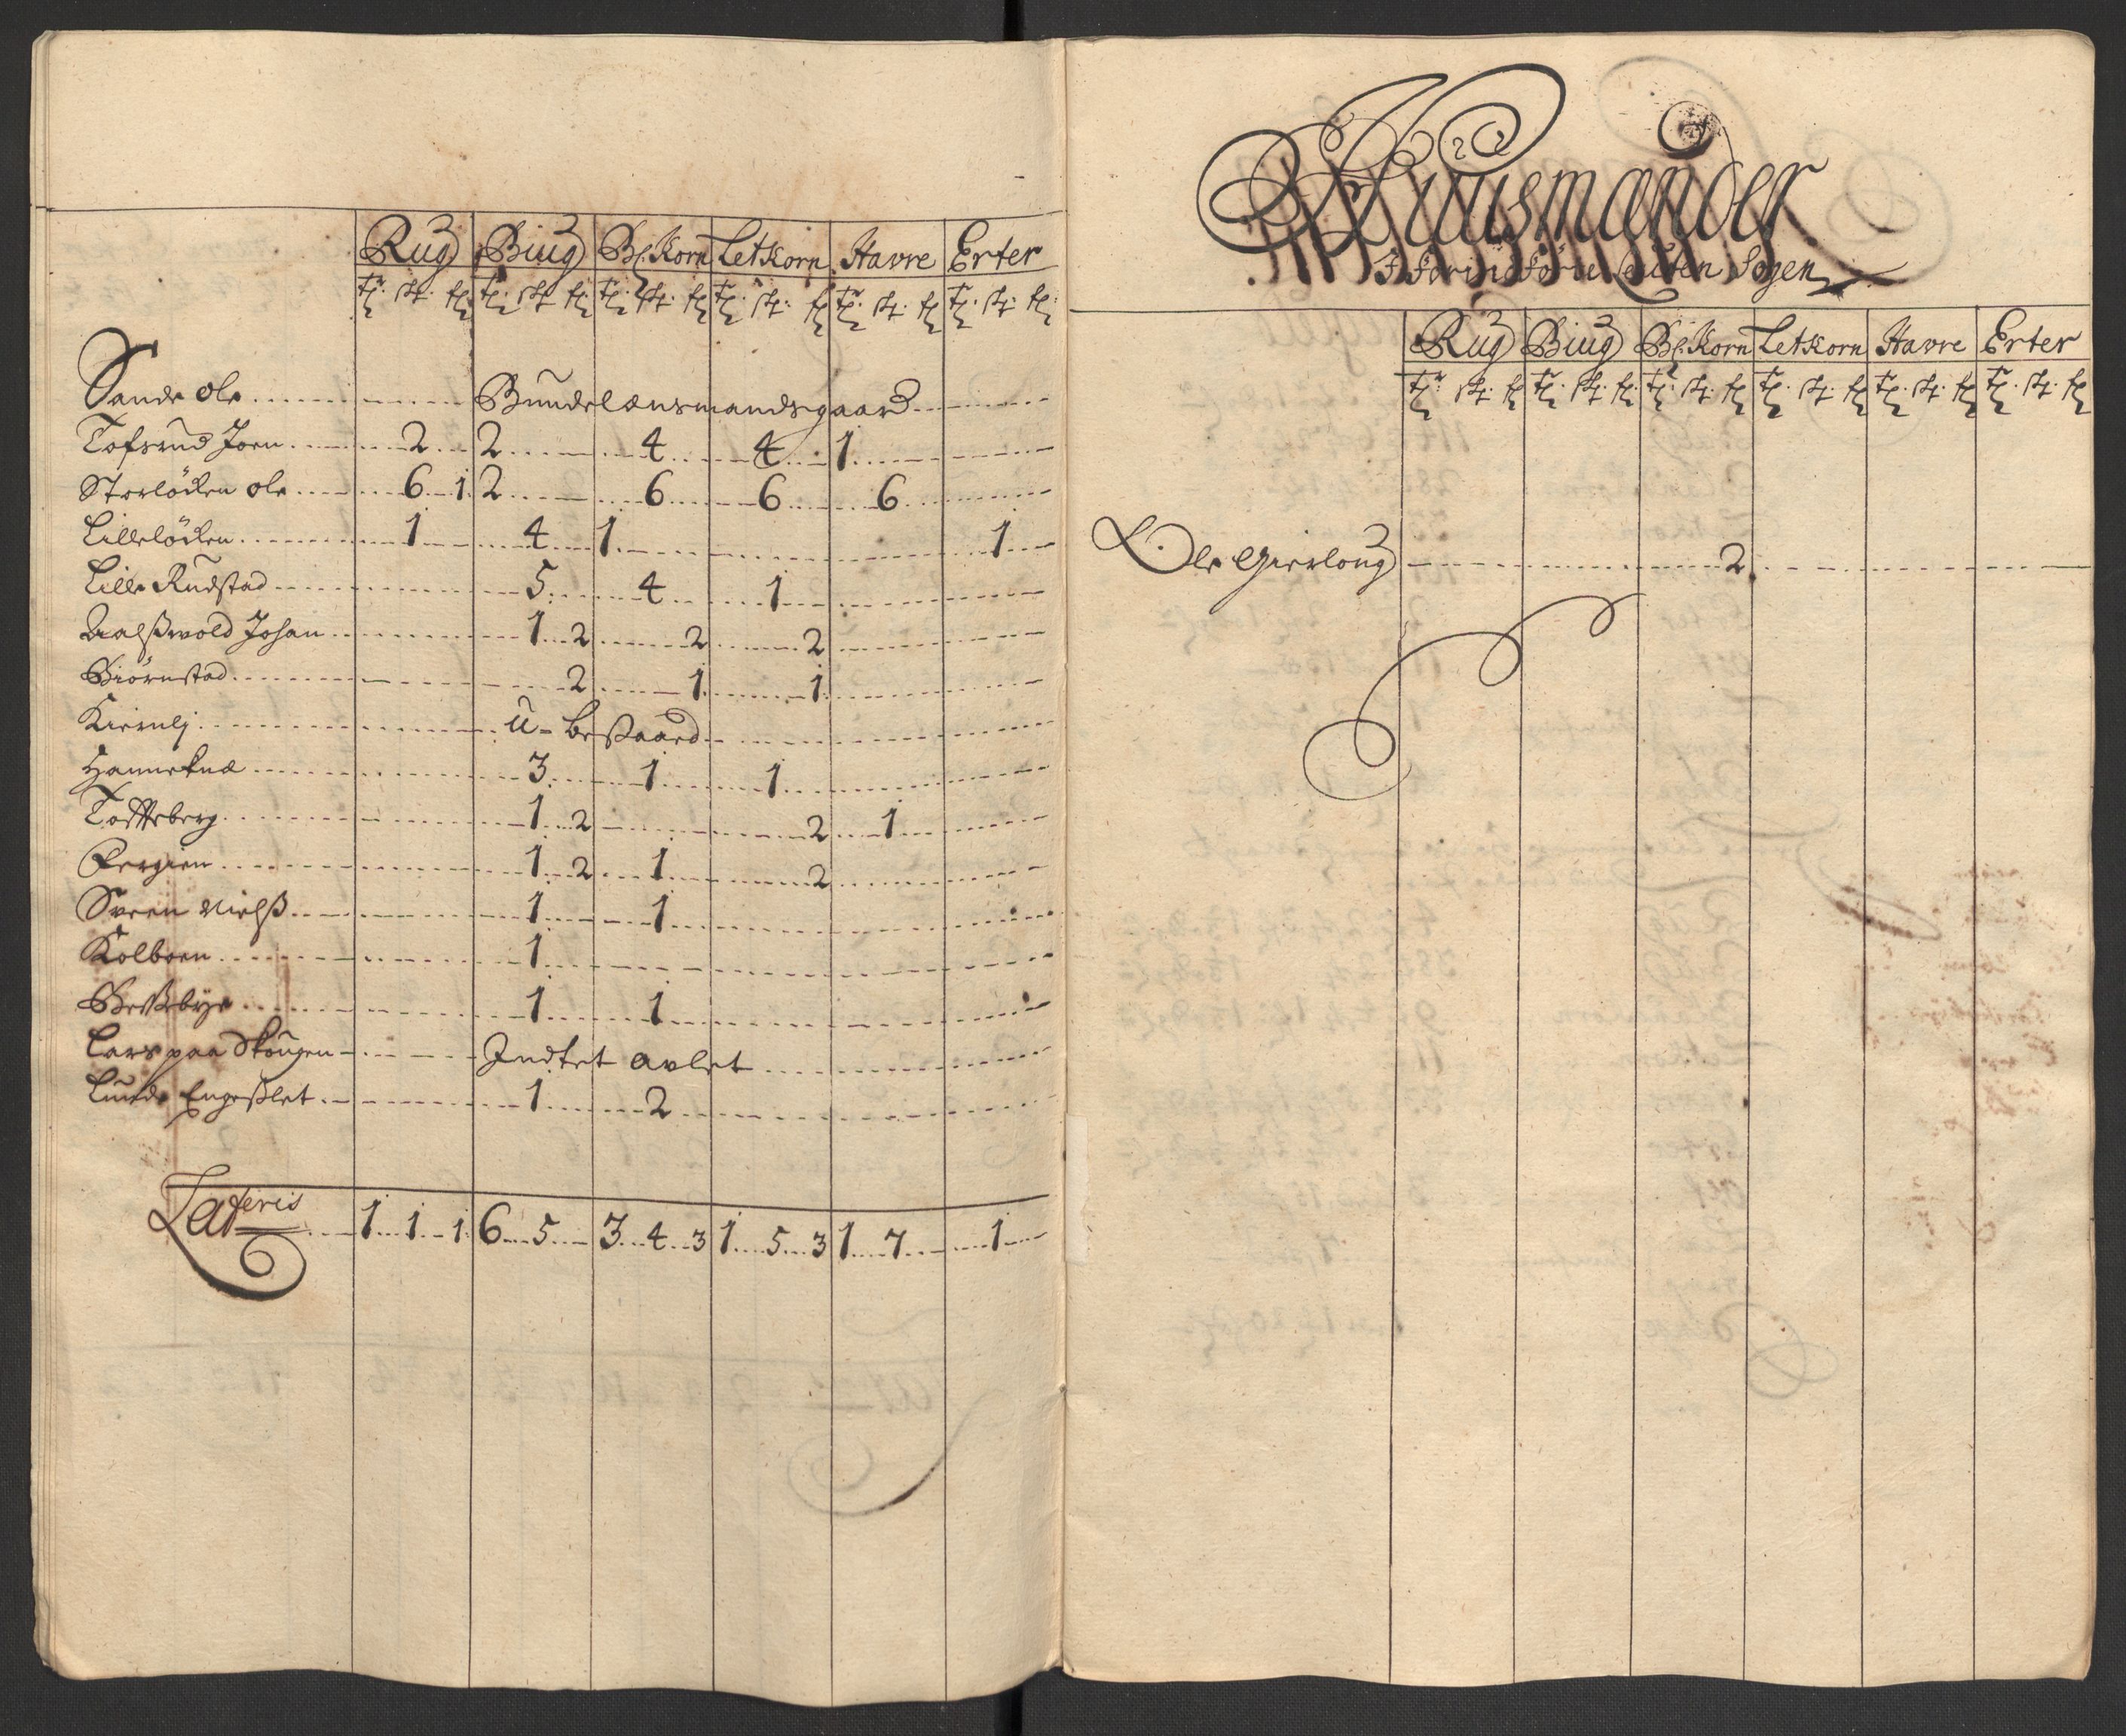 Rug Biug Bl. Korn Letkorn Havre Erter
Sande Ole Bundelænsmandsgaard
Tofsrud Joen 2 2 4 4 1
Storlöcken Ole 6 1 2 6 6 6
Lillelöcken 1 4 1 1
Lille Rudstad 5 4 1
Aalsswold Johan 1 2 2 2
Biörnstad 2 1 1
u-besaaed
3 1 1
Toffteberg 1 2 2 1
1 2 1 2
Sveen Nielss 1 1
Kolboen 1
1 1
Lars paa Skougen Indtet avlet
Lunde Engesslet 1 2
Lateris 1 1 1 6 5 3 4 3 1 5 3 1 7 1
Huusmænder
I Forindförte Leuten Sogen
Rug Biug Bl. Korn Letkorn Havre Erter
Ole Gierlong 2